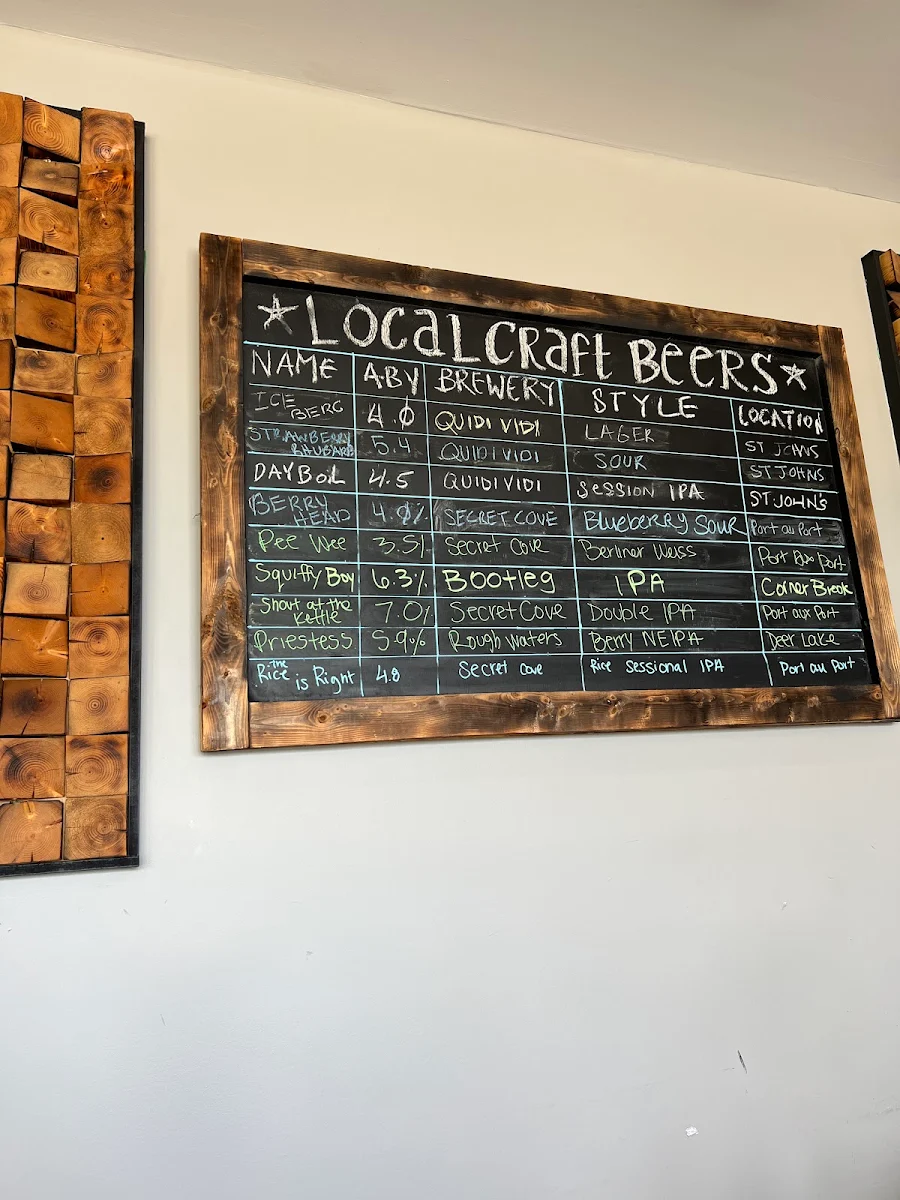 ★ LOCAL CRAFT BEERS ★
NAME ABV BREWERY STYLE LOCATION
ICE BERG 4.0 QUIDI VIDI LAGER ST JOHNS
STRAWBERRY RHUBARB 5.4 QUIDI VIDI SOUR ST JOHNS
DAY BOIL 4.5 QUIDI VIDI SESSION IPA ST. JOHN'S
BERRY HEAD 4.0% SECRET COVE BLUEBERRY SOUR Port au Port
Pee Wee 3.5% Secret Cove Berliner Weiss Port Port
Squiffy Boy 6.3% Bootleg IPA Corner Brook
Shout at the Kettle 7.0% Secret Cove Double IPA Port aux Port
Priestess 5.9% Rough Waters Berry NEIPA Deer Lake
the Rice is Right 4.8 Secret Cove Rice Sessional IPA Port au Port